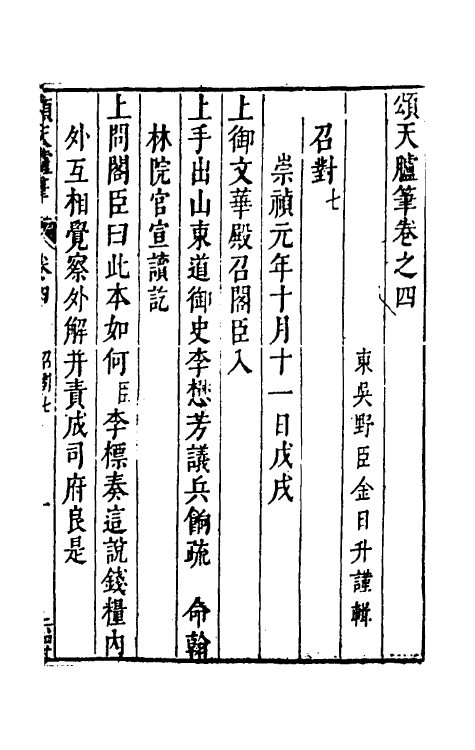 頌天臚筆卷之四
東吳野臣金日升謹輯
召對七
崇禎元年十月十一日戊戌
上御文華殿召閣臣入
上手出山東道御史李懋芳議兵餉疏 命翰
林院官宣讀訖
上問閣臣曰此本如何臣李標奏這說錢糧內
外互相覺察外解并責成司府良是
頌天臚筆 卷四 召對七 一